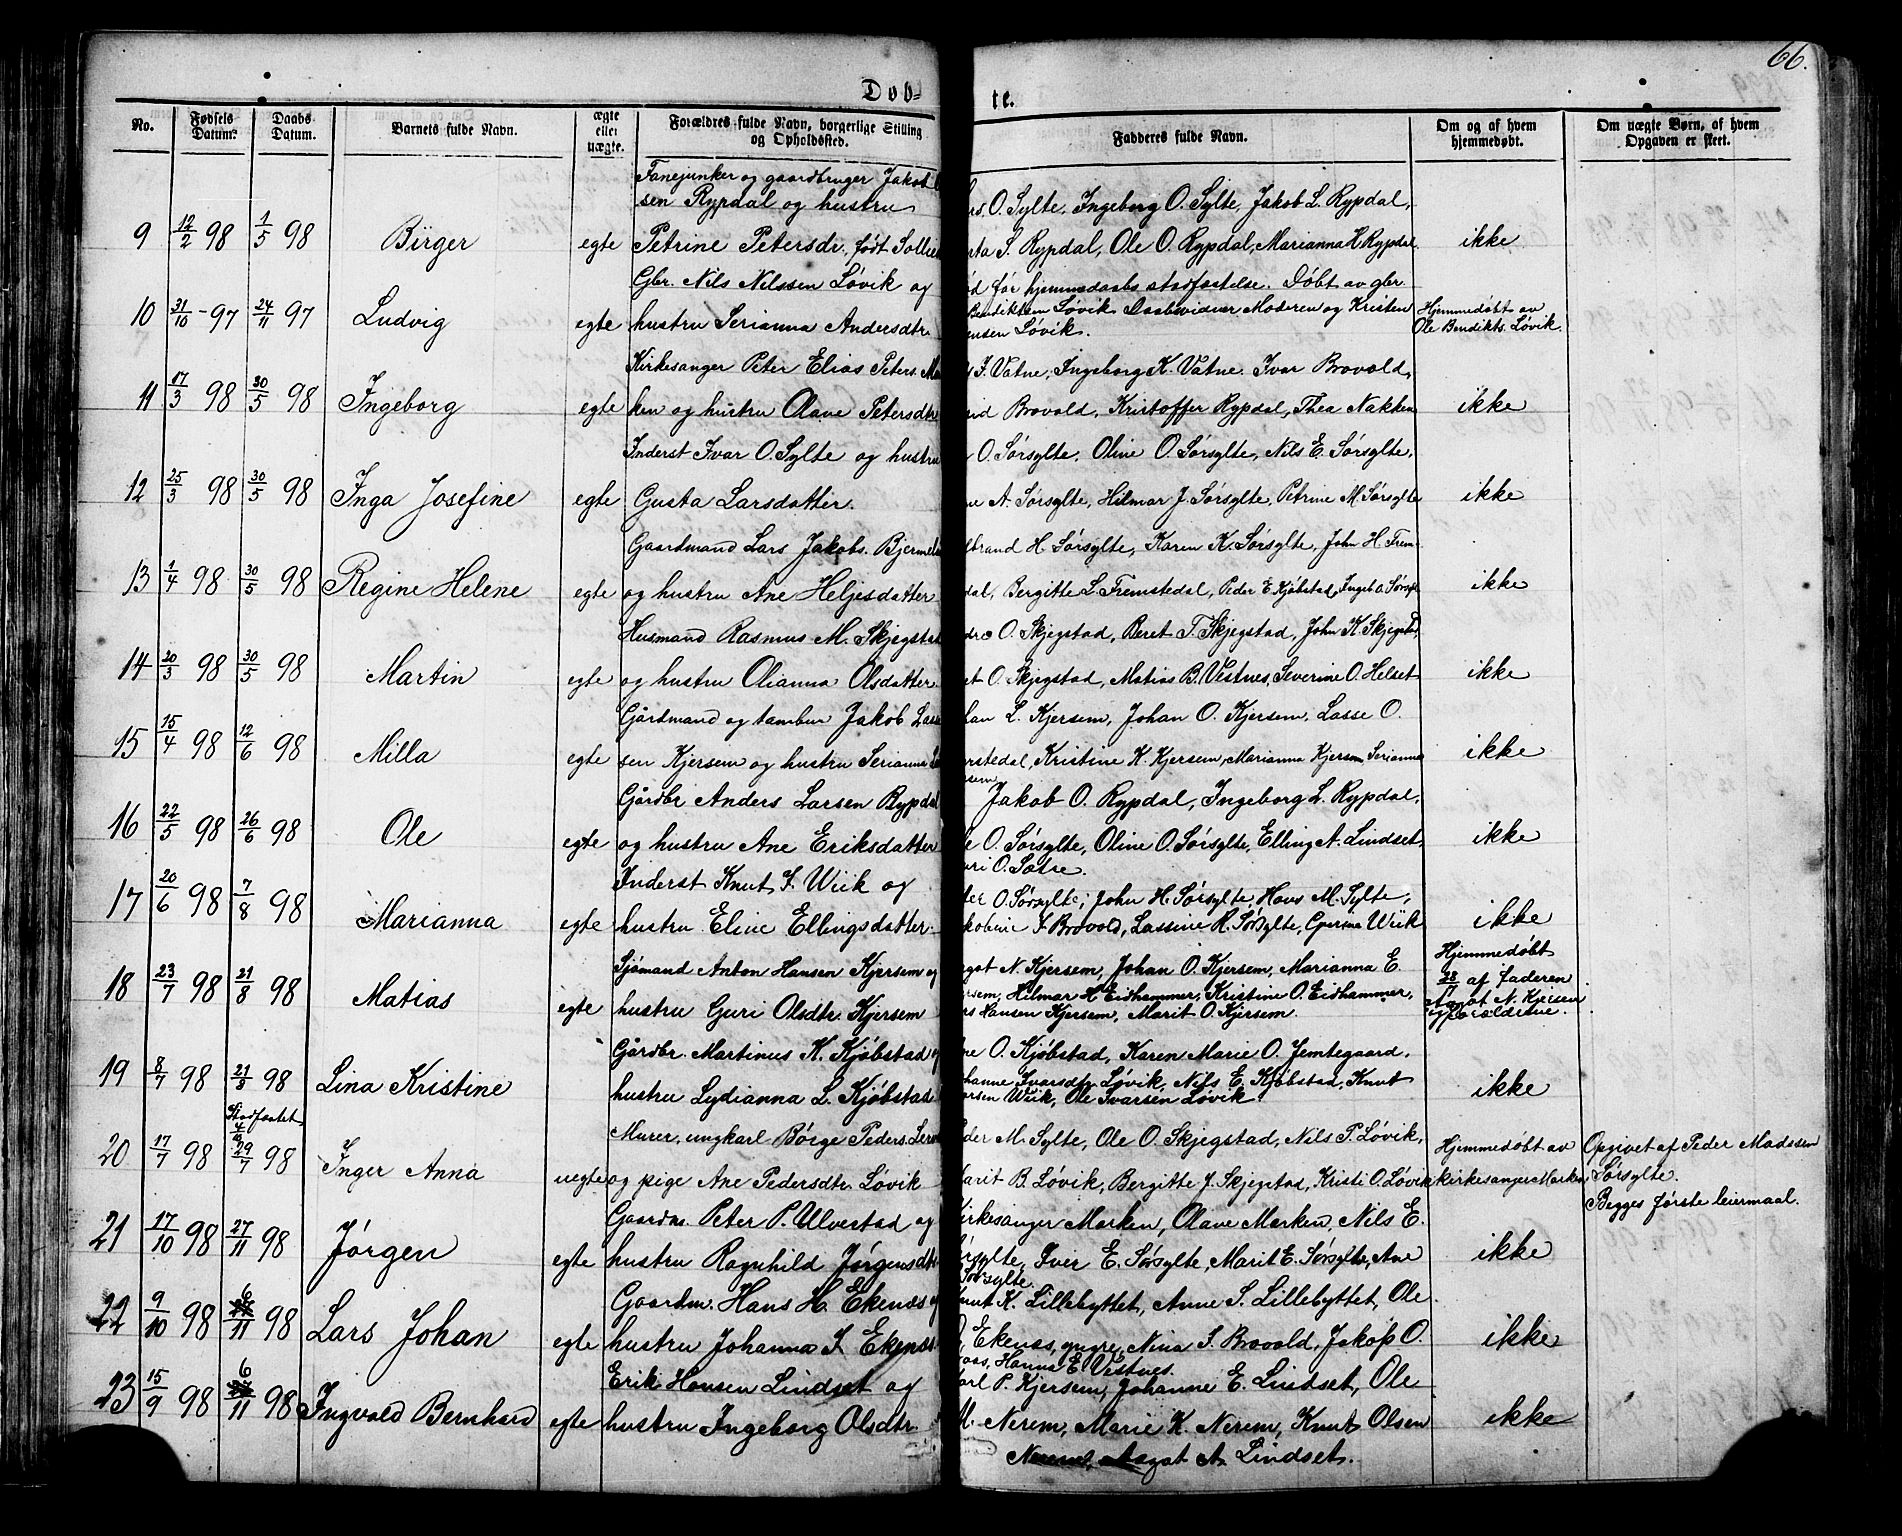 66.
Døb- te.
No. Fødsels Datum. Daabs Datum. Barnets fulde Navn. ægte eller uægte. Forældres fulde Navn, borgerlige Stilling og Opholdssted. Fadderes fulde Navn. Om og af hvem hjemmedøbt. Om uægte Børn, af hvem Opgaven er skeet.
Fanejunker og gaardbruger Jakob
sen Rypdal og hustru O. Sylte, Ingeborg O. Sylte, Jakob L. Rypdal,
9 12/2 98 1/5 98 Birger egte Petrine Petersdr. født S. Rypdal, Ole O. Rypdal, Marianna K Rypdal ikke
Gbr. Nils Nilssen Løvik og før hjemmedaabs stadfæstelse. Døbt av gbr.
10 31/10 - 97 24/11 97 Ludvig egte hustru Serianna Andersdtr. Løvik Daabsvidner Moderen og Kristen Hjemmedøbt av
Løvik. Ole Bendikts. Løvik.
Kirkesanger Peter Elias Peters. J. Vatne, Ingeborg K. Vatne. Ivar Brovold,
11 17/3 98 30/5 98 Ingeborg egte ken og hustru Olave Petersdtr Brovold, Kristoffer Rypdal, Thea Nakken ikke
Inderst Ivar O. Sylte og hustru O. Sørsylte, Oline O. Sørsylte, Nils E. Sørsylte,
12 25/3 98 30/5 98 Inga Josefine egte Gusta Larsdatter. A. Sørsylte, Hilmar J. Sørsylte, Petrine M. Sørsylte ikke
Gaardmand Lars Jakobs. brand H. Sørsylte, Karen K. Sørsylte, John H. Frem-
13 1/4 98 30/5 98 Regine Helene egte og hustru Ane Heljesdatter dal, Bergitte L. Fremstedal, Peder E. Kjøbstad, Ingeb. O. Sørsylte ikke
Husmand Rasmus M. Skjegstad O. Skjegstad, Beret T. Skjegstad, John K. Skjegstad,
14 20/3 98 30/5 98 Martin egte og hustru Olianna Olsdatter O. Skjegstad, Matias B. Vestnes, Severine O. Helset ikke
Gårdmand og tambur Jakob Lasse L. Kjersem, Johan O. Kjersem, Lasse O.
15 15/4 98 12/6 98 Milla egte sen Kjersem og hustru Serianna stedal, Kristine K. Kjersem, Marianna Kjersem, Serianna ikke
sem
Gårdbr Anders Larsen Rypdal Jakob O. Rypdal, Ingeborg L. Rypdal,
16 22/5 98 26/6 98 Ole egte og hustru Ane Eriksdatter O. Sørsylte, Oline O. Sørsylte, Elling A. Lindset ikke
uri O. Sætre.
17 20/6 98 7/8 98 Marianna Inderst Knut S. Wiik og O. Sørsylte, John H. Sørsylte, Hans M. Sylte,
egte hustru Eline Ellingsdatter. Brovold, Lassine R. Sørsylte, Wiik ikke
18 23/7 98 21/8 98 Matias Sjømand Anton Hansen Kjersem og N. Kjersem, Johan O. Kjersem, Marianna E. Hjemmedøbt
sem, Hilmar H Eidhammer, Kristine O. Eidhammer, af faderen
egte hustru Guri Olsdtr. Kjersem Hansen Kjersem, Marit O. Kjersem. N. Kjersem
19 8/7 98 21/8 98 Lina Kristine Gårdbr. Martinus K. Kjøbstad O. Kjøbstad, Karen Marie O. Jemtegaard,
hustru Lydianna L. Kjøbstad Ivarsdtr. Løvik, Nils E. Kjøbstad, Knut ikke
Stadfæstet Wiik, Ole Ivarsen Løvik.
Murer, ungkarl Børge Peders. M. Sylte, Ole O. Skjegstad, Nils P. Løvik,
20 17/7 98 29/7 98 Inger Anna uegte og pige Ane Pedersdtr. Løvik B. Løvik, Bergitte J. Skjegstad, Kristi O. Løvik Hjemmedøbt av kirkesanger Opgivet af Peder Madssen
Sørsylte.
Begges første leiermaal.
21 17/10 98 27/11 98 Jørgen Gaardm. Peter P. Ulvestad og Kirkesanger Marken, Olave Marken, Nils E.
egte hustru Ragnhild Jørgensdtr Sørsylte, Iver E. Sørsylte, Marit E. Sørsylte, Ane ikke
Sørsylte.
22 9/10 98 6/11 98 Lars Johan Gaardm. Hans H. Ekenæs og K. Lillebyttet, Anne S. Lillebyttet, Ole
egte hustru Johanna I Ekenæs Ekenæs, yngre, Nina I. Brovold, Jakob O. ikke
Hanna E. Vestnes.
23 15/9 98 6/11 98 Ingvald Bernhard Erik Hansen Lindset og P. Kjersem, Johanne E. Lindset, Ole
egte hustru Ingeborg Olsdtr M. Nerem, Marie K. Nerem, Knut Olsen ikke
Nerem, Aagot A. Lindset.